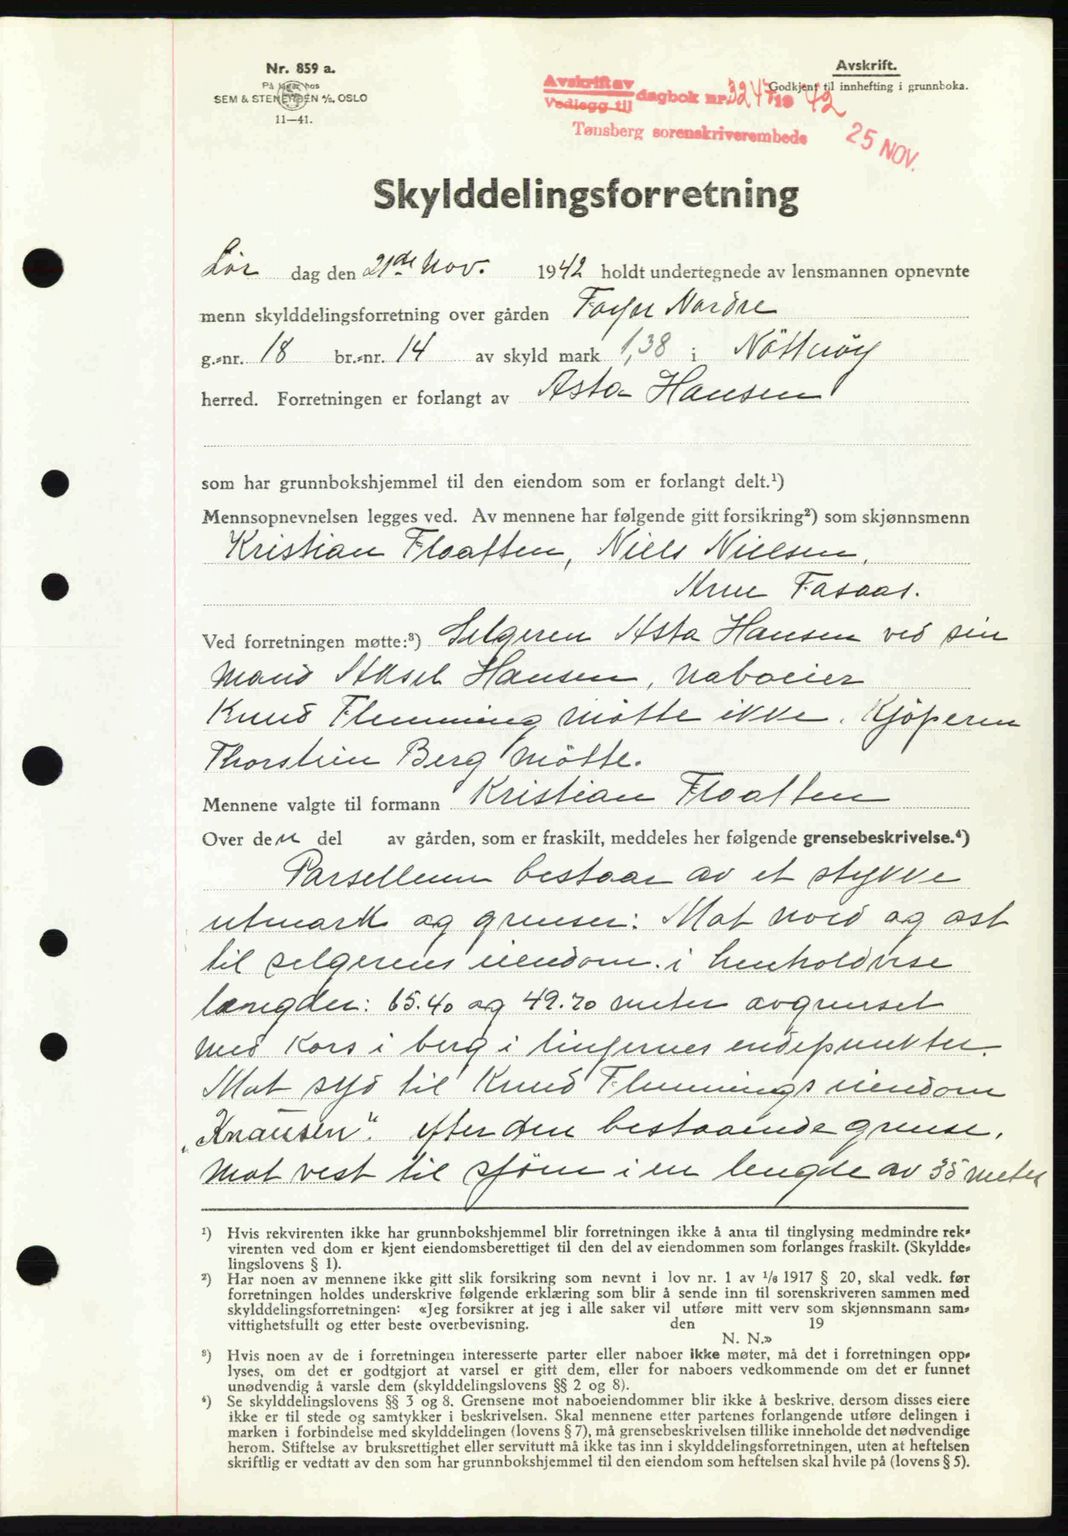 Nr. 859 a.
På lager hos
SEM & STENERSEN A/S, OSLO
11—41.
Avskrift.
Godkjent til innhefting i grunnboka.
Avskrift av
Vedlegg til
dagbok nr. 3247 19 42
Tønsberg sorenskriverembede
25 NOV.
Skylddelingsforretning
Lør dag den 21de Nov. 1942 holdt undertegnede av lensmannen opnevnte
menn skylddelingsforretning over gården Nordre
g.-nr. 18 br.-nr. 14 av skyld mark 1,38 i Nötteröy
herred. Forretningen er forlangt av Asta Hansen
som har grunnbokshjemmel til den eiendom som er forlangt delt.¹)
Mennsopnevnelsen legges ved. Av mennene har følgende gitt forsikring²) som skjønnsmenn
Kristian Floatten, Niels Nielsen,
Arne Fasaas.
Ved forretningen møtte:³) Selgeren Asta Hansen ved sin
mand Aksel Hansen, naboeier
Knud Flemming mötte ikke. Kjöperen
Thorstein Berg mötte.
Mennene valgte til formann Kristian Floatten
Over den del av gården, som er fraskilt, meddeles her følgende grensebeskrivelse.⁴)
Parsellenn bestaar av et stykke
utmark og grenser: Mot nord og ost
til selgerens eiendom i henholdvise
længder: 65.40 og 49.70 meter avgrenset
med kors i berg i linjernes endepunkter.
Mot syd til Knud Flemmings eiendom
„Knausen". efter den bestaaende grense.
mot vest til sjöen i en lengde av 35 meter
¹) Hvis rekvirenten ikke har grunnbokshjemmel blir forretningen ikke å anta til tinglysing medmindre rek-
virenten ved dom er kjent eiendomsberettiget til den del av eiendommen som forlanges fraskilt. (Skyldde-
lingslovens § 1).
²) Har noen av mennene ikke gitt slik forsikring som nevnt i lov nr. 1 av 1/6 1917 § 20, skal vedk. før
forretningen holdes underskrive følgende erklæring som blir å sende inn til sorenskriveren sammen med
skylddelingsforretningen: «Jeg forsikrer at jeg i alle saker vil utføre mitt verv som skjønnsmann sam-
vittighetsfullt og etter beste overbevisning. den 19
N. N.»
³) Hvis noen av de i forretningen interesserte parter eller naboer ikke møter, må det i forretningen opp-
lyses, om det er godtgjort at varsel er gitt dem, eller for naboers vedkommende om det er funnet
unødvendig å varsle dem (skylddelingslovens §§ 2 og 8).
⁴) Se skylddelingslovens §§ 3 og 8. Grensene mot naboeiendommer blir ikke å beskrive, dersom disses eiere
ikke er til stede og samtykker i beskrivelsen. Skal mennene etter partenes forlangende utføre delingen i
marken i forbindelse med skylddelingen (lovens § 7), må grensebeskrivelsen tillike inneholde det nødvendige
herom. Stiftelse av bruksrettighet eller servitutt må ikke tas inn i skylddelingsforretningen, uten at heftelsen
skriftlig er vedtatt av den som har grunnbokshjemmel til den eiendom som heftelsen skal hvile på (lovens § 5).